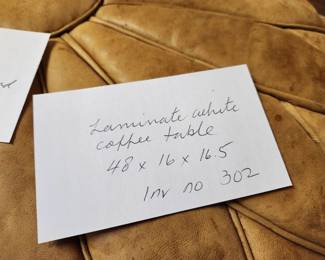 Laminate white
coffee table
48 x 16 x 16.5
Inv no 302